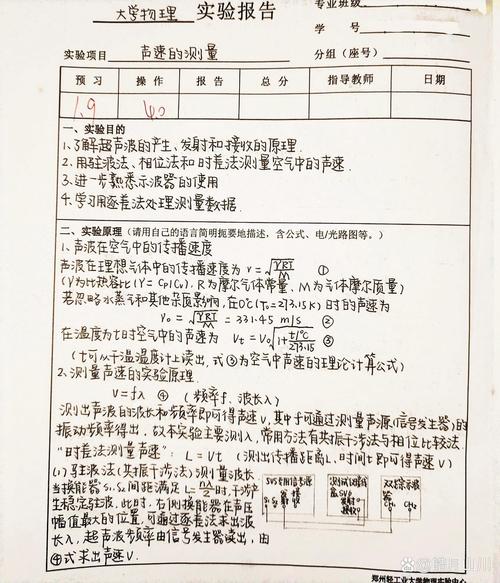 大学物理 实验报告
专业班级
学号
实验项目 声速的测量 分组（座号）
预习 操作 报告 总分 指导教师 日期
1.9 40
一、实验目的
1.了解超声波的产生、发射和接收的原理.
2.用驻波法、相位法和时差法测量空气中的声速.
3.进一步熟悉示波器的使用
4.学习用逐差法处理测量数据.
二、实验原理（请用自己的语言简明扼要地描述，含公式、电/光路图等。）
1.声波在空气中的传播速度
声波在理想气体中的传播速度为 v=√(γRT/M) ①
(γ为比热容比(γ=Cp/Cv), R为摩尔气体常量, M为气体摩尔质量)
若忽略水蒸气和其他杂质影响,在0℃(T₀=273.15K)时的声速为
V₀=√(γRT/M)=331.45 m/s ②
在温度为t时的空气中的声速为 Vt=V₀√(1+t/℃/273.15) ③
(t可从干温温度计上读出,式③为空气中声速的理论计算公式)
2.测量声速的实验原理
V=fλ ④ (频率f.波长λ)
测出声波的波长和频率即可得声速V,其中f可通过测量声源(信号发生器)的
振动频率得出,故本实验主要测λ,常用方法有共振干涉法与相位比较法.
"时差法测量声速": L=Vt (测出传播距离L.时间t即可得声速V)
(1)驻波法(共振干涉法)测量波长
当换能器S₁.S₂间距满足L=nλ/2时,干涉产
生稳定驻波,此时,右侧换能器在声压
幅值最大的位置,可通过逐差法求出波
长λ,超声波步频率由信号发生器读出,由
④式求出声速V.
SV5专用信号源
双踪示波器
郑州轻工业大学物理实验中心